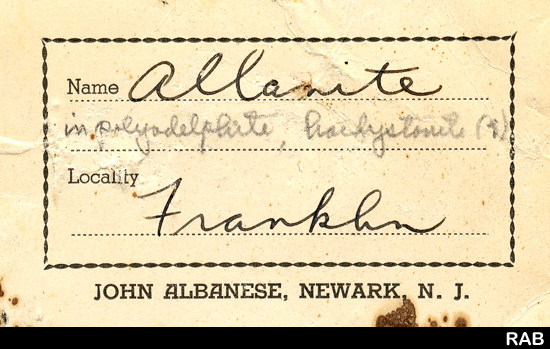 Name Allanite
in polyadelphite, hardystonite (?)
Locality
Franklin
JOHN ALBANESE, NEWARK, N. J.
RAB